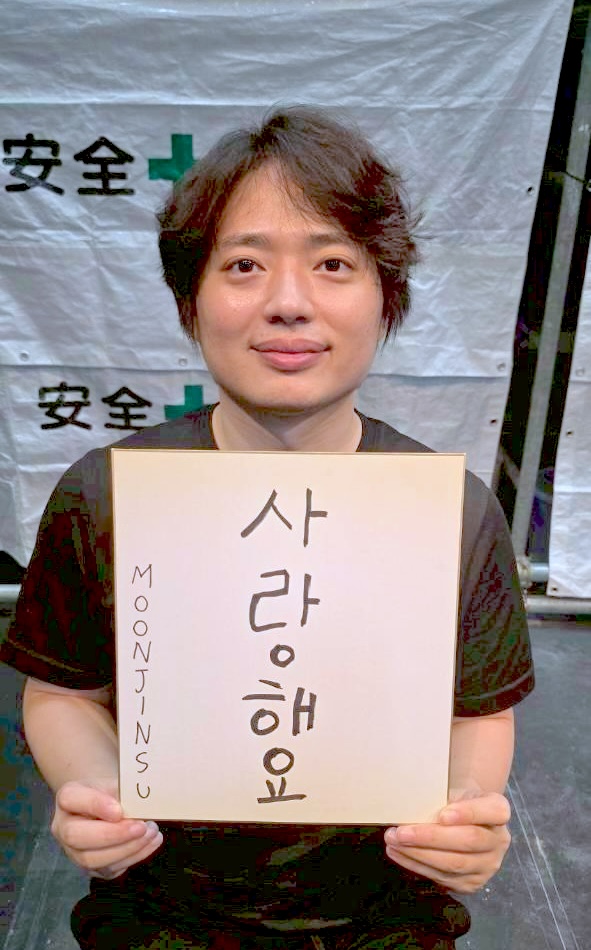 安全
安全
사랑해요
MOONJINSU